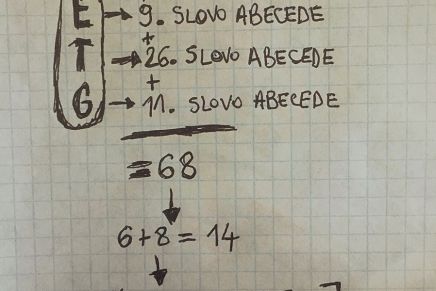 E → 9. SLOVO ABECEDE
+
T → 26. SLOVO ABECEDE
+
G → 11. SLOVO ABECEDE
= 68
↓
6+8 = 14
↓